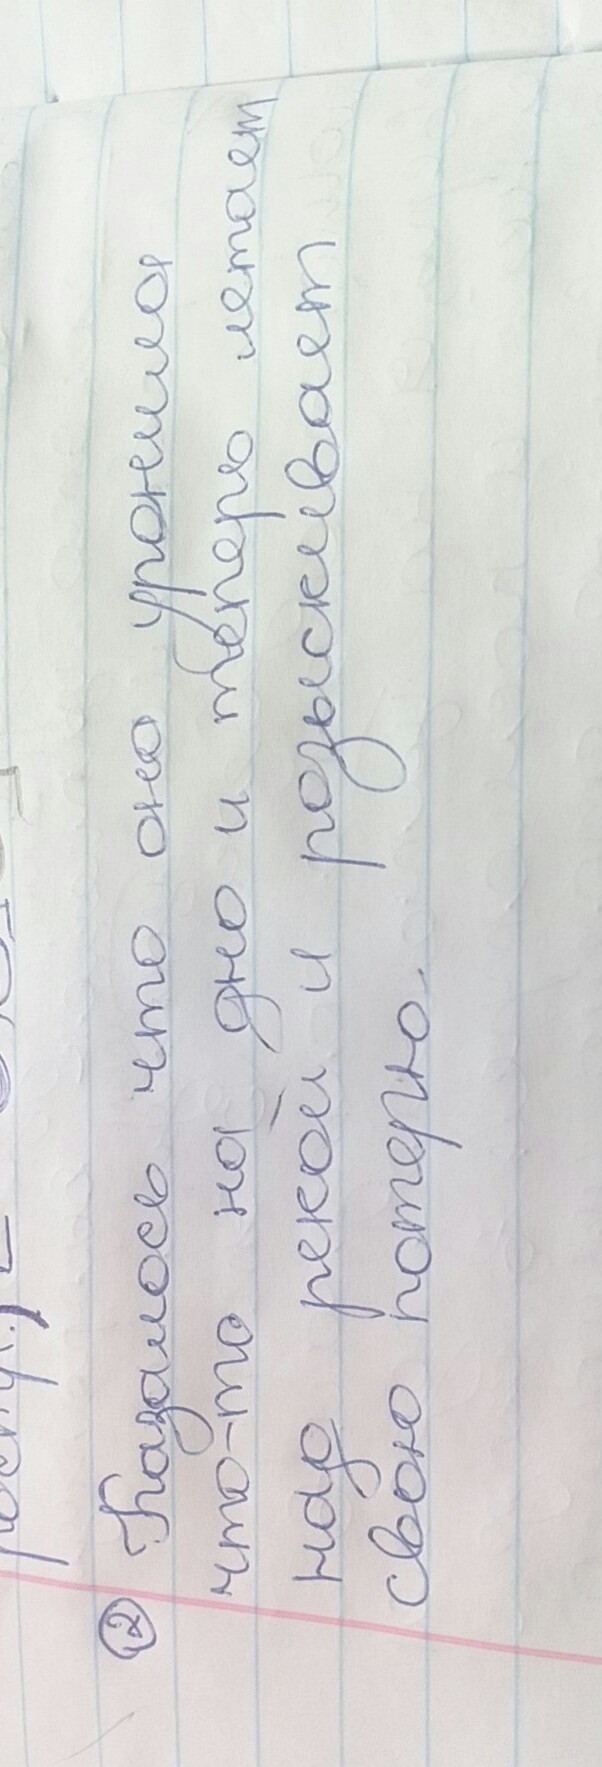 ② Казалось что она уронила
что-то на дно и теперь летает
над рекой и розыскивает
свою потерю.